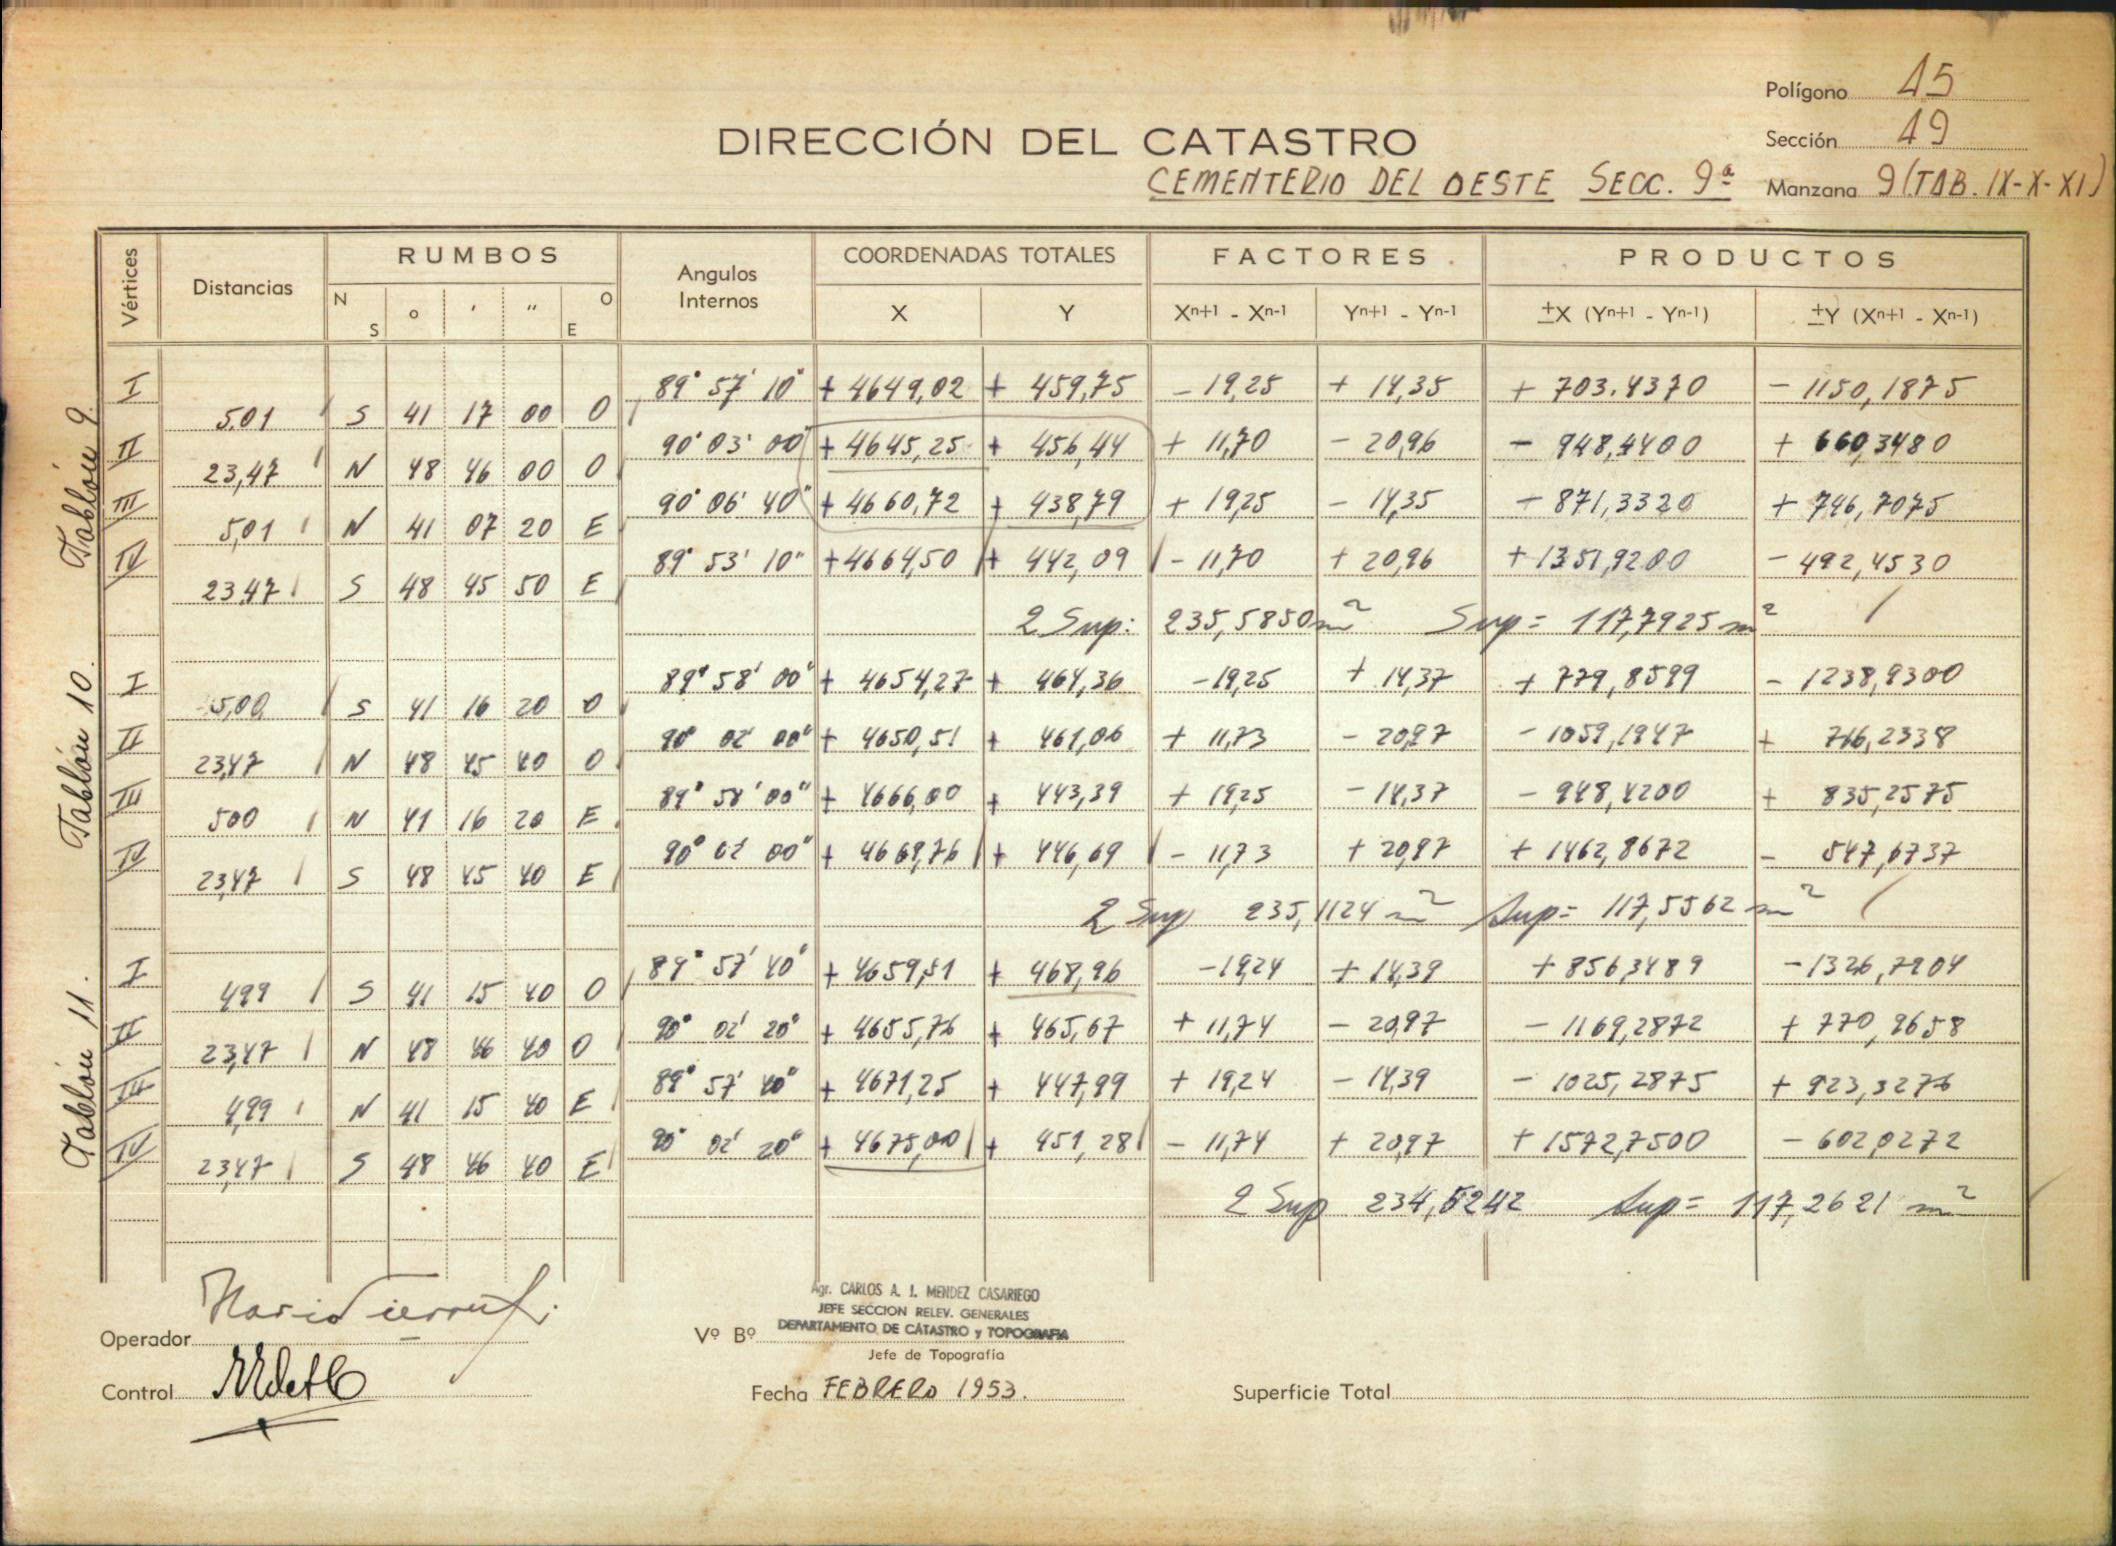 Polígono 15
DIRECCIÓN DEL CATASTRO
Sección 19
CEMENTERIO DEL OESTE SECC. 9ª
Manzana 9 (TAB. IX-X-XI)
Vértices Distancias RUMBOS Angulos Internos COORDENADAS TOTALES FACTORES PRODUCTOS
N S o ' " O E X Y Xn+1 - Xn-1 Yn+1 - Yn-1 ±X (Yn+1 - Yn-1) ±Y (Xn+1 - Xn-1)
Tablón 9.
I 89° 57' 10" + 4649,02 + 459,75 - 19,25 + 14,35 + 703.4370 - 1150,1875
5.01 S 41 17 00 O
II 90° 03' 00" + 4645,25 + 456,44 + 11,70 - 20,96 - 948,4400 + 660,3480
23,47 N 48 46 00 O
III 90° 06' 40" + 4660,72 + 438,79 + 19,25 - 14,35 - 871,3320 + 746,7075
5,01 N 41 07 20 E
IV 89° 53' 10" + 4664,50 + 442,09 - 11,70 + 20,96 + 1351,9200 - 492,4530
23,47 S 48 45 50 E
2 Sup: 235,5850 m² Sup = 117,7925 m²
Tablón 10.
I 89° 58' 00" + 4654,27 + 464,36 - 19,25 + 14,37 + 779,8599 - 1238,9300
5,00 S 41 16 20 O
II 90° 02' 00" + 4650,51 + 461,06 + 11,73 - 20,97 - 1059,1947 + 716,2338
23,47 N 48 45 40 O
III 89° 58' 00" + 4666,00 + 443,39 + 19,25 - 14,37 - 948,4200 + 835,2575
500 N 41 16 20 E
IV 90° 02' 00" + 4669,76 + 446,69 - 11,73 + 20,97 + 1462,8672 - 547,6737
23,47 S 48 45 40 E
2 Sup 235,1124 m² Sup = 117,5562 m²
Tablón 11.
I 89° 57' 40" + 4659,51 + 468,96 - 19,24 + 14,39 + 856,3489 - 1326,7904
4,99 S 41 15 40 O
II 90° 02' 20" + 4655,76 + 465,67 + 11,74 - 20,97 - 1169,2872 + 770,9658
23,47 N 48 46 40 O
III 89° 57' 40" + 4671,25 + 447,99 + 19,24 - 14,39 - 1025,2875 + 923,3276
4,99 N 41 15 40 E
IV 90° 02' 20" + 4675,00 + 451,28 - 11,74 + 20,97 + 1572,7500 - 602,0272
23,47 S 48 46 40 E
2 Sup 234,5242 Sup = 117,2621 m²
Agr. CARLOS A. J. MENDEZ CASARIEGO
JEFE SECCION RELEV. GENERALES
DEPARTAMENTO DE CATASTRO y TOPOGRAFIA
Operador
Vº Bº
Jefe de Topografía
Control
Fecha FEBRERO 1953.
Superficie Total